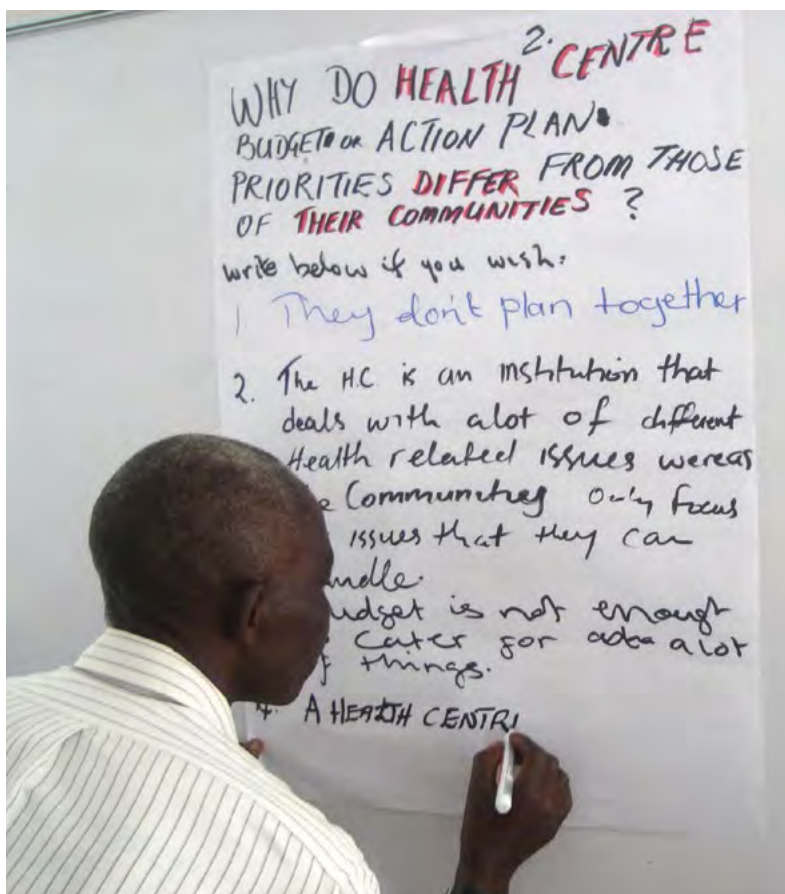 2.
WHY DO HEALTH CENTRE
BUDGET OR ACTION PLAN
PRIORITIES DIFFER FROM THOSE
OF THEIR COMMUNITIES ?
write below if you wish:
1 They don't plan together
2. The H.C. is an institution that
deals with alot of different
Health related issues wereas
Communities only focus
issues that they can
budget is not enough
cater for a lot
things.
4. A HEALTH CENTR